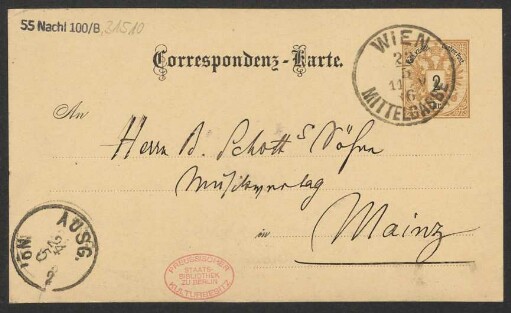 55 Nachl 100/B, 21510
Correspondenz-Karte.
WIEN
MITTELGASSE
2
An
Herrn B. Schott's Söhne
Musikverlag
in Mainz
AUSG
PREUSSISCHER
STAATS-
BIBLIOTHEK
ZU BERLIN
KULTURBESITZ